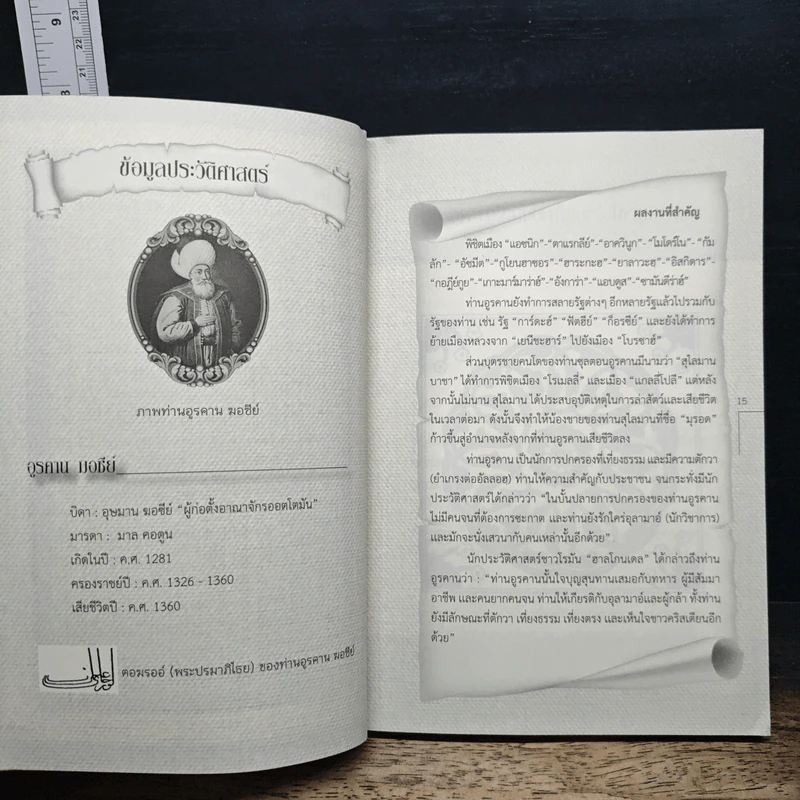 9
8
23
22
21
ข้อมูลประวัติศาสตร์
ภาพท่านอูรคาน ฆอซีย์
อูรคาน ฆอซีย์
บิดา : อุษมาน ฆอซีย์ "ผู้ก่อตั้งอาณาจักรออตโตมัน"
มารดา : มาล คอตูน
เกิดในปี : ค.ศ. 1281
ครองราชย์ปี : ค.ศ. 1326 - 1360
เสียชีวิตปี : ค.ศ. 1360
ตอฆรออ์ (พระปรมาภิไธย) ของท่านอูรคาน ฆอซีย์
ผลงานที่สำคัญ
พิชิตเมือง "แอซนิก"-"ตาแรกลีย์"-"อาควินูก"-"โมโดร์โน"-"กัม
ลัก"- "อัชมีต"-"กูโยนฮาซอร"-"ฮาระกะฮ"-"ยาลาวะฮฺ"-"อิสกิดาร"
-"กอฎีย์กูย"-"เกาะมาร์มาร่าฮ์"-"อังการ่า"-"แอบดูส"-"ซามันดีร่าฮ์"
ท่านอูรคานยังทำการสลายรัฐต่างๆ อีกหลายรัฐแล้วไปรวมกับ
รัฐของท่าน เช่น รัฐ "การ์ดะฮ์" "ฟัดฮีย์" "ก็อรซีย์" และยังได้ทำการ
ย้ายเมืองหลวงจาก "เยนีชะฮาร์" ไปยังเมือง "โบรซาฮ์"
ส่วนบุตรชายคนโตของท่านซุลตอนอูรคานมีนามว่า "สุไลมาน
บาชา" ได้ทำการพิชิตเมือง "โรเมลลี่" และเมือง "แกลลี่โปลี" แต่หลัง
จากนั้นไม่นาน สุไลมาน ได้ประสบอุบัติเหตุในการล่าสัตว์และเสียชีวิต
ในเวลาต่อมา ดังนั้นจึงทำให้น้องชายของท่านสุไลมานที่ชื่อ "มุรอด"
ก้าวขึ้นสู่อำนาจหลังจากที่ท่านอูรคานเสียชีวิตลง
ท่านอูรคาน เป็นนักการปกครองที่เที่ยงธรรม และมีความตักวา
(ยำเกรงต่ออัลลอฮ) ท่านให้ความสำคัญกับประชาชน จนกระทั่งมีนัก
ประวัติศาสตร์ได้กล่าวว่า "ในบั้นปลายการปกครองของท่านอูรคาน
ไม่มีคนจนที่ต้องการซะกาต และท่านยังรักใคร่อุลามาอ์ (นักวิชาการ)
และมักจะนั่งเสวนากับคนเหล่านั้นอีกด้วย"
นักประวัติศาสตร์ชาวโรมัน "ฮาลโกนเดล" ได้กล่าวถึงท่าน
อูรคานว่า : "ท่านอูรคานนั้นใจบุญสุนทานเสมอกับทหาร ผู้มีสัมมา
อาชีพ และคนยากคนจน ท่านให้เกียรติกับอุลามาอ์และผู้กล้า ทั้งท่าน
ยังมีลักษณะที่ตักวา เที่ยงธรรม เที่ยงตรง และเห็นใจชาวคริสเตียนอีก
ด้วย"
15